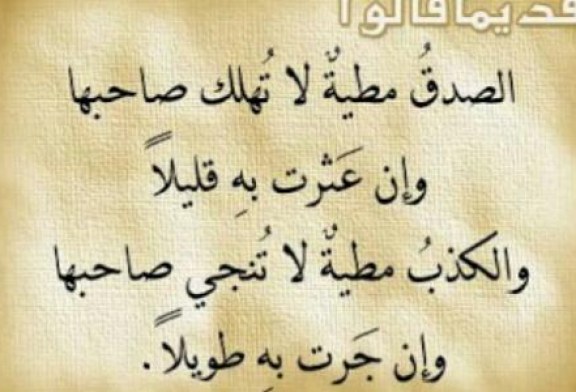 قديما قالوا
الصدقُ مطيةٌ لا تُهلك صاحبها
وإن عَثرت بهِ قليلاً
والكذبُ مطيةٌ لا تُنجي صاحبها
وإن جَرت بهِ طويلاً.